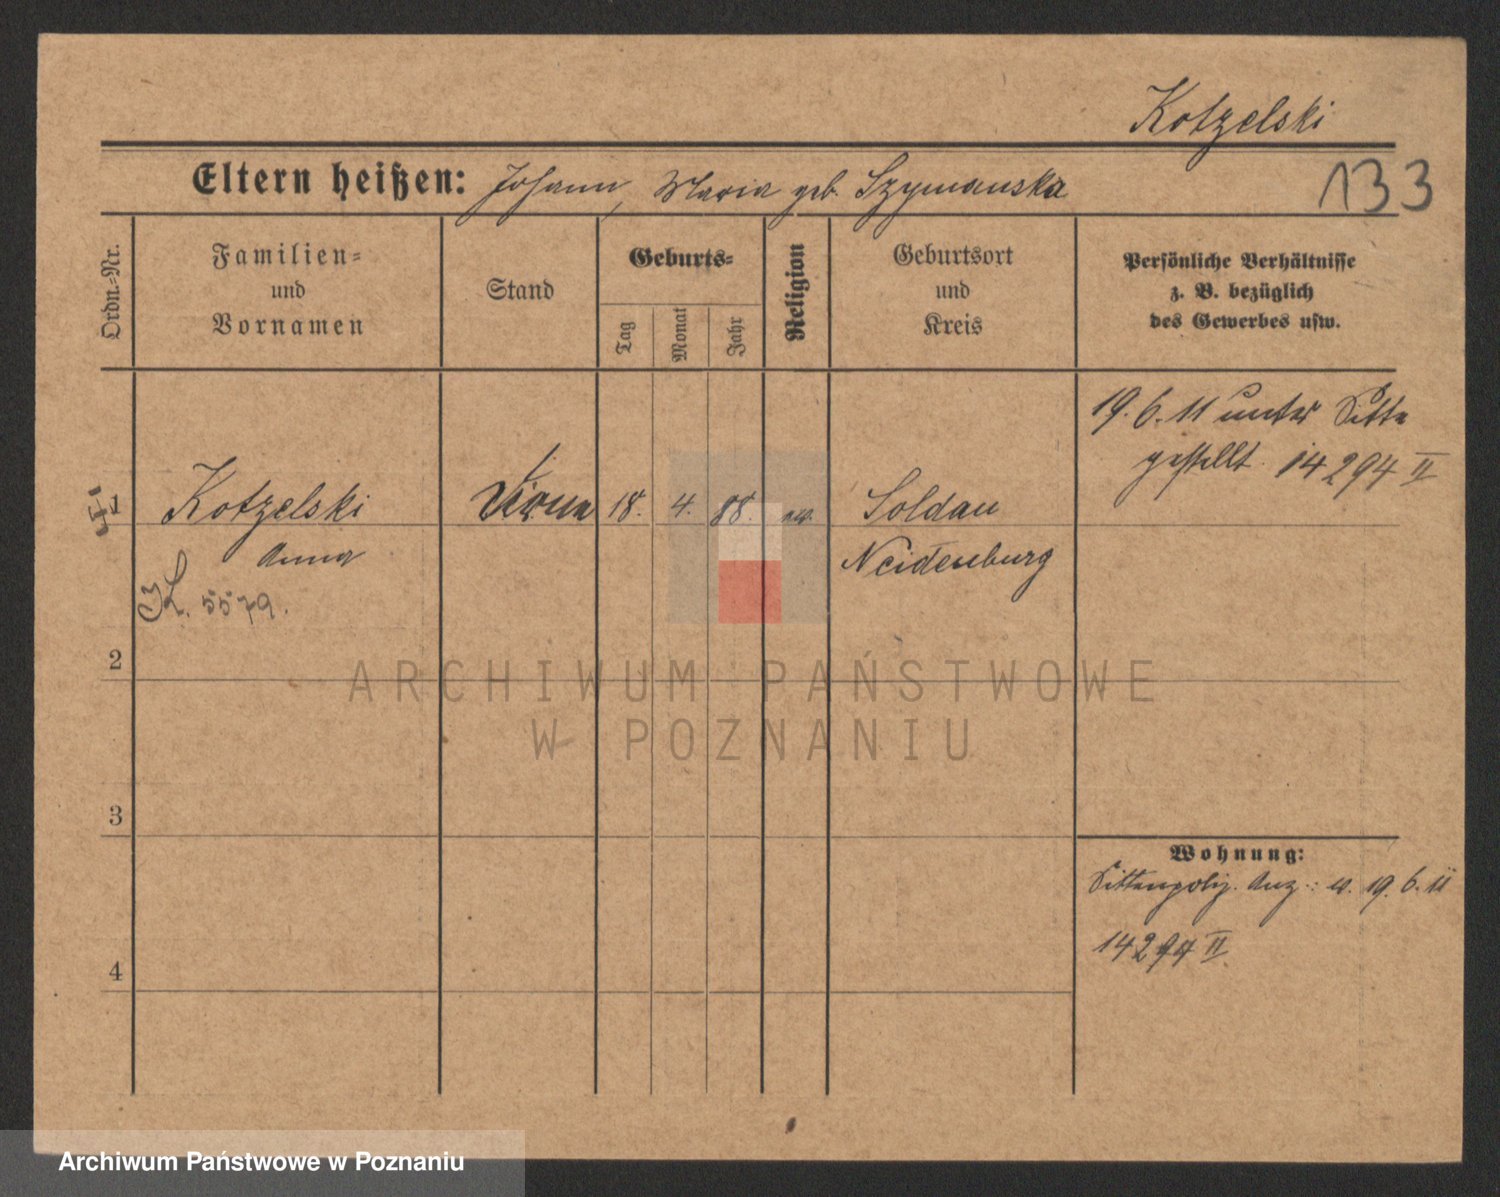 Kotzelski
Eltern heißen: Johann, Maria geb. Szymanska
133
Ordn.-Nr.
Familien-
und
Vornamen
Stand
Geburts-
Tag
Monat
Jahr
Religion
Geburtsort
und
Kreis
Persönliche Verhältnisse
z. B. bezüglich
des Gewerbes usw.
19. 6. 11 unter Sitte
gestellt. 14294 II
1
Kotzelski
18. 4. 88.
Soldau
Anna
Neidenburg
5579.
2
ARCHIWUM PAŃSTWOWE
W POZNANIU
3
Wohnung:
Sittenpoliz. Anz.: v. 19. 6. 11
14294 II
4
Archiwum Państwowe w Poznaniu